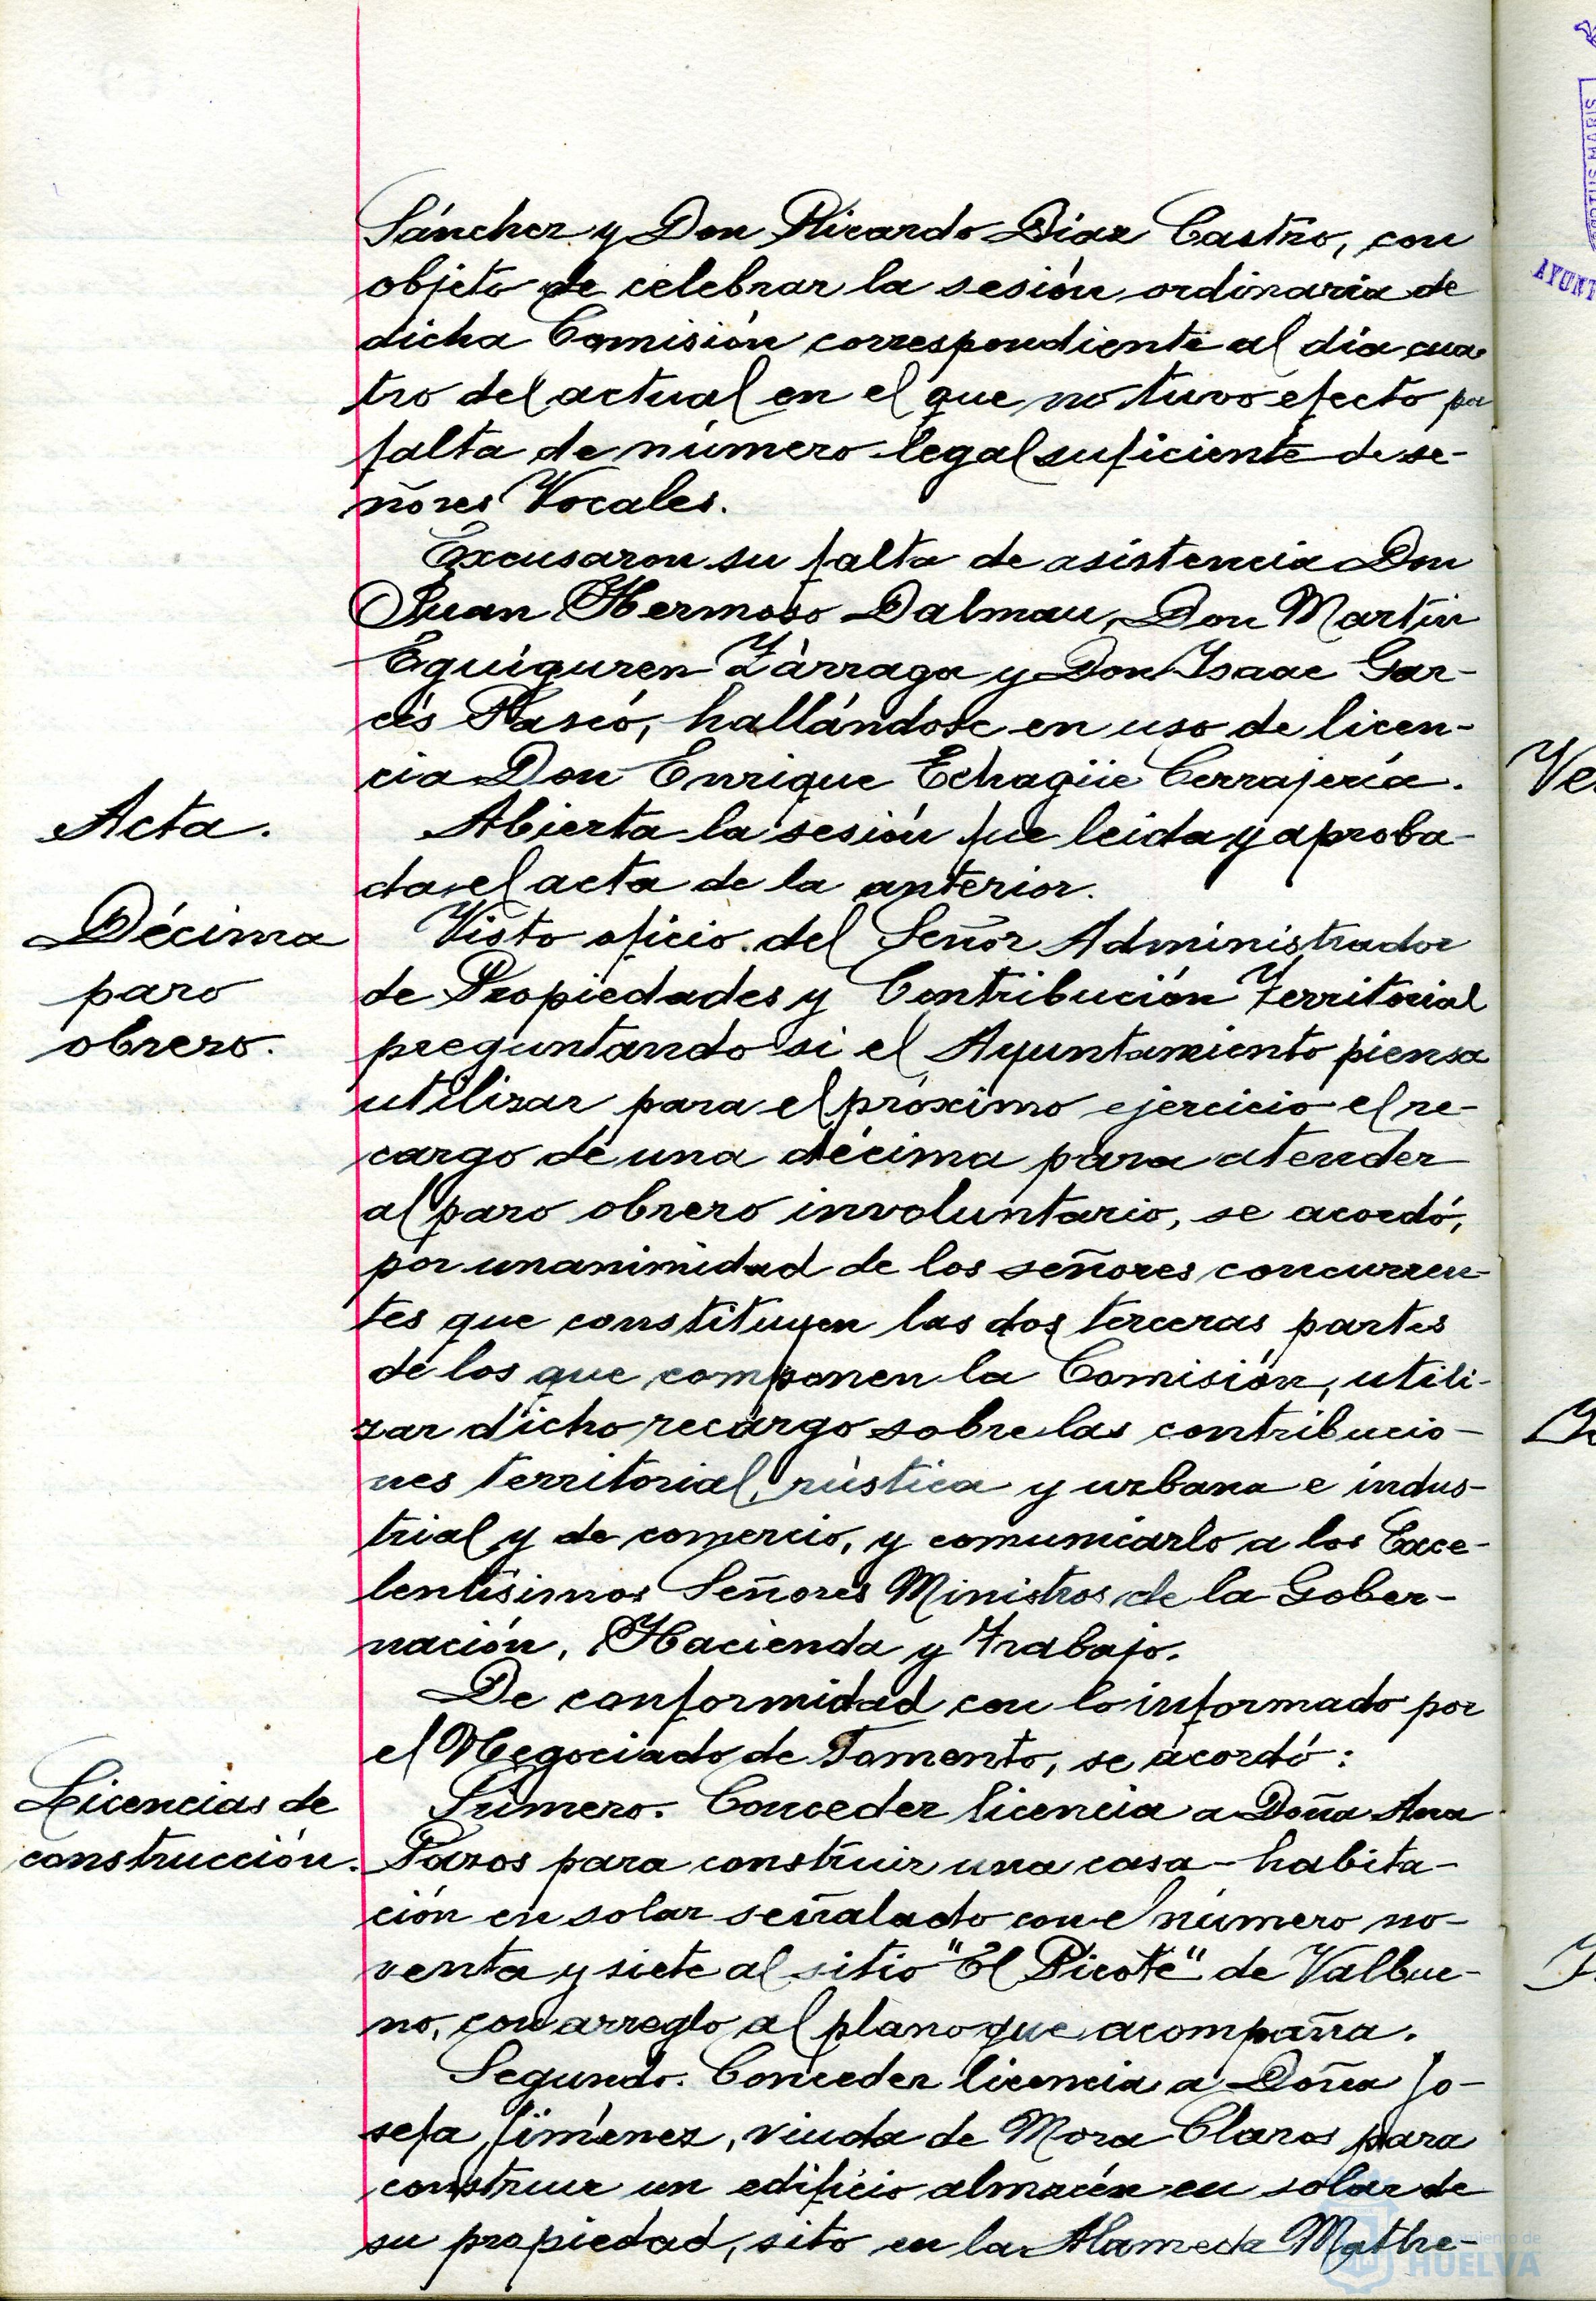 Sánchez y Don Ricardo Díaz Castro, con
objeto de celebrar la sesión ordinaria de
dicha Comisión correspondiente al día cua-
tro del actual en el que no tuvo efecto por
falta de número legal suficiente de se-
ñores Vocales.
Excusaron su falta de asistencia Don
Juan Hermoso Dalmau, Don Martín
Eguiguren Zárraga y Don Isaac Gar-
cés Rascó, hallándose en uso de licen-
cia Don Enrique Echagüe Cerrajería.
Acta.
Abierta la sesión fue leida y aproba-
da el acta de la anterior.
Décima
paro
obrero.
Visto oficio del Señor Administrador
de Propiedades y Contribución Territorial
preguntando si el Ayuntamiento piensa
utilizar para el próximo ejercicio el re-
cargo de una décima para atender
al paro obrero involuntario, se acordó,
por unanimidad de los señores concurren-
tes que constituyen las dos terceras partes
de los que componen la Comisión, utili-
zar dicho recargo sobre las contribucio-
nes territorial, rústica y urbana e indus-
trial y de comercio, y comunicarlo a los Exce-
lentísimos Señores Ministros de la Gober-
nación, Hacienda y Trabajo.
De conformidad con lo informado por
el Negociado de Fomento, se acordó:
Licencias de
construcción.
Primero. Conceder licencia a Doña Ana
Pazos para construir una casa-habita-
ción en solar señalado con el número no-
venta y siete al sitio "El Picote" de Valbue-
no, con arreglo al plano que acompaña.
Segundo. Conceder licencia a Doña Jo-
sefa Jiménez, viuda de Mora Claros para
construir un edificio almacén en solar de
su propiedad, sito en la Alameda Mathe-
HUELVA